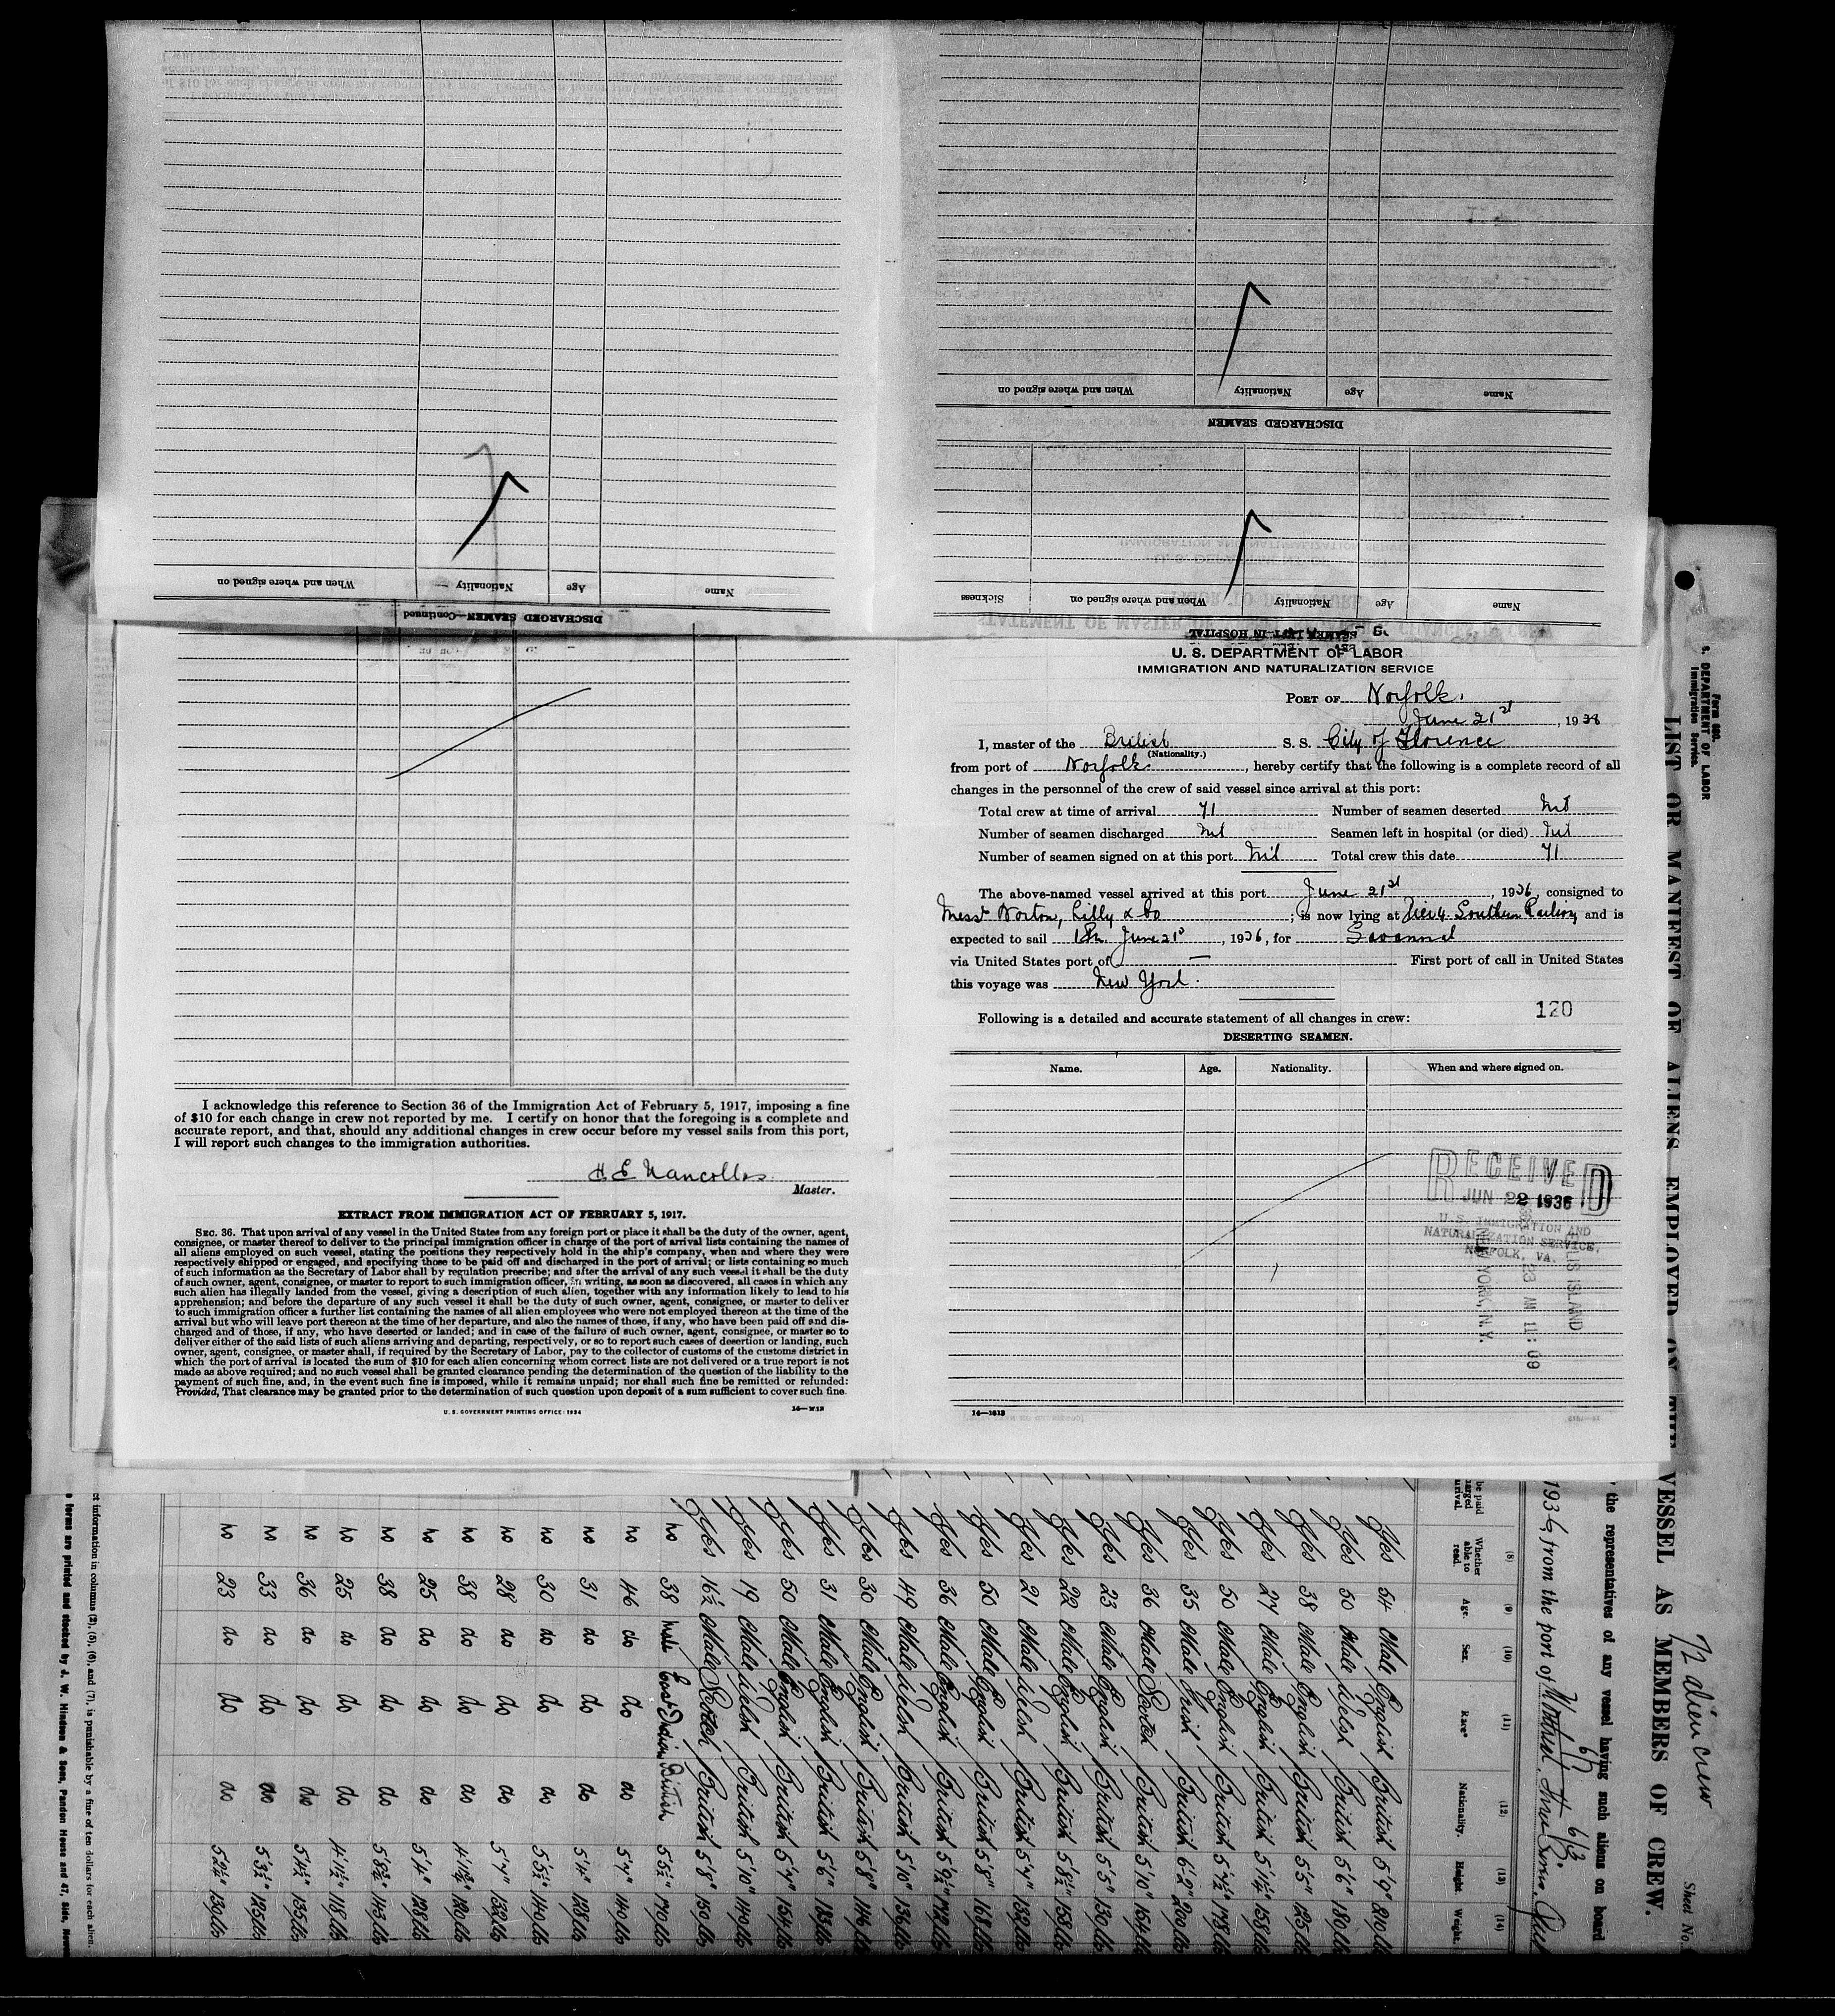 When and where signed on
Nationality
Age
Name
DISCHARGED SEAMEN—Continued
When and where signed on
Nationality
Age
Name
DISCHARGED SEAMEN
Sickness
When and where signed on
Nationality
Age
Name
SEAMEN LEFT IN HOSPITAL
I acknowledge this reference to Section 36 of the Immigration Act of February 5, 1917, imposing a fine
of $10 for each change in crew not reported by me. I certify on honor that the foregoing is a complete and
accurate report, and that, should any additional changes in crew occur before my vessel sails from this port,
I will report such changes to the immigration authorities.
H E Nancollas
Master.
EXTRACT FROM IMMIGRATION ACT OF FEBRUARY 5, 1917.
SEC. 36. That upon arrival of any vessel in the United States from any foreign port or place it shall be the duty of the owner, agent,
consignee, or master thereof to deliver to the principal immigration officer in charge of the port of arrival lists containing the names of
all aliens employed on such vessel, stating the positions they respectively hold in the ship's company, when and where they were
respectively shipped or engaged, and specifying those to be paid off and discharged in the port of arrival; or lists containing so much
of such information as the Secretary of Labor shall by regulation prescribe; and after the arrival of any such vessel it shall be the duty
of such owner, agent, consignee, or master to report to such immigration officer, in writing, as soon as discovered, all cases in which any
such alien has illegally landed from the vessel, giving a description of such alien, together with any information likely to lead to his
apprehension; and before the departure of any such vessel it shall be the duty of such owner, agent, consignee, or master to deliver
to such immigration officer a further list containing the names of all alien employees who were not employed thereon at the time of the
arrival but who will leave port thereon at the time of her departure, and also the names of those, if any, who have been paid off and dis-
charged and of those, if any, who have deserted or landed; and in case of the failure of such owner, agent, consignee, or master so to
deliver either of the said lists of such aliens arriving and departing, respectively, or so to report such cases of desertion or landing, such
owner, agent, consignee, or master shall, if required by the Secretary of Labor, pay to the collector of customs of the customs district in
which the port of arrival is located the sum of $10 for each alien concerning whom correct lists are not delivered or a true report is not
made as above required; and no such vessel shall be granted clearance pending the determination of the question of the liability to the
payment of such fine, and, in the event such fine is imposed, while it remains unpaid; nor shall such fine be remitted or refunded:
Provided, That clearance may be granted prior to the determination of such question upon deposit of a sum sufficient to cover such fine.
U. S. GOVERNMENT PRINTING OFFICE: 1934
U. S. DEPARTMENT OF LABOR
IMMIGRATION AND NATURALIZATION SERVICE
PORT OF Norfolk.
June 21st, 1936
I, master of the British S. S. City of Florence
(Nationality.)
from port of Norfolk, hereby certify that the following is a complete record of all
changes in the personnel of the crew of said vessel since arrival at this port:
Total crew at time of arrival 71 Number of seamen deserted Nil
Number of seamen discharged Nil Seamen left in hospital (or died) Nil
Number of seamen signed on at this port Nil Total crew this date 71
The above-named vessel arrived at this port June 21st, 1936, consigned to
Messrs Norton, Lilly & Co; is now lying at Pier 4 Southern Railway and is
expected to sail June 21st, 1936, for Savannah
via United States port of — First port of call in United States
this voyage was New York.
Following is a detailed and accurate statement of all changes in crew:
120
DESERTING SEAMEN.
Name. Age. Nationality. When and where signed on.
RECEIVED
JUN 22 1936
U. S. IMMIGRATION AND
NATURALIZATION SERVICE,
NORFOLK, VA.
ELLIS ISLAND
23 AM 11:09
NEW YORK, N.Y.
14—1813
Form 680.
S. DEPARTMENT OF LABOR
Immigration Service.
LIST OR MANIFEST OF ALIENS EMPLOYED ON THE VESSEL AS MEMBERS OF CREW.
72 alien crew
Sheet No.
the representatives of any vessel having such aliens on board
1936, from the port of
(8) (9) (10) (11) (12) (13) (14)
Whether able to read. Age. Sex. Race* Nationality. Height Weight.
Yes 54 Male English British 5'9" 210 lb
Yes 50 Male Welsh British 5'6" 180 lb
Yes 38 Male English British 5'5" 125 lb
Yes 27 Male English British 158 lb
Yes 50 Male English British 5'7½" 178 lb
Yes 35 Male Irish British 6'-2" 200 lb
Yes 36 Male Scotch British 5'10" 154 lb
Yes 23 Male English British 5'5" 130 lb
Yes 22 Male English British 5'8½" 158 lb
Yes 21 Male Welsh British 5'7" 132 lb
Yes 50 Male English British 5'8" 168 lb
Yes 36 Male English British 5'9½" 172 lb
Yes 49 Male Welsh British 5'10" 136 lb
Yes 30 Male English British 5'8" 146 lb
Yes 31 Male English British 5'6" 183 lb
Yes 50 Male English British 5'7" 154 lb
Yes 19 Male Welsh British 5'10" 140 lb
Yes 16½ Male Scotch British 5'8" 150 lb
no 38 Male East Indian British 5'5½" 170 lb
no 46 do do do 5'7" 140 lb
no 31 do do do 5'4" 128 lb
no 30 do do do 5'5½" 140 lb
no 28 do do do 5'7" 132 lb
no 38 do do do 120 lb
no 25 do do do 5'4" 128 lb
no 38 do do do 143 lb
no 25 do do do 4'11½" 118 lb
no 36 do do do 5'4½" 135 lb
no 33 do do do 5'3½" 125 lb
no 23 do do do 130 lb
ct information in columns (2), (5), (6), and (7), is punishable by a fine of ten dollars for each alien.
forms are printed and stocked by J. W. Hindson & Sons, Pandon House and 47, Side,